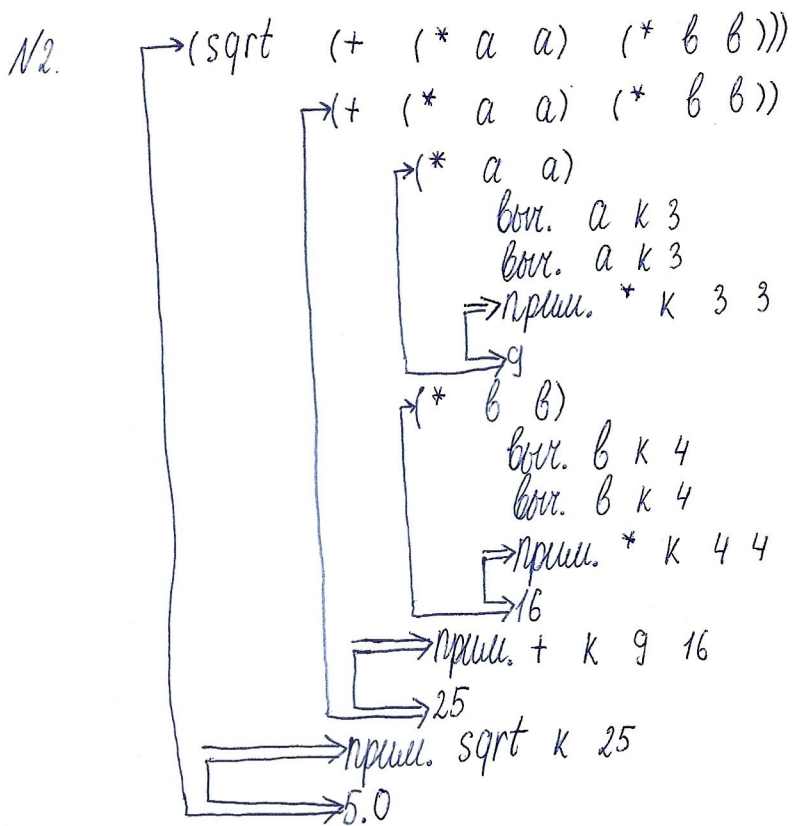 N2. (sqrt (+ (* а а) (* в в)))
(+ (* а а) (* в в))
(* а а)
выч. а к 3
выч. а к 3
прим. * к 3 3
9
(* в в)
выч. в к 4
выч. в к 4
прим. * к 4 4
16
прим. + к 9 16
25
прим. sqrt к 25
5.0